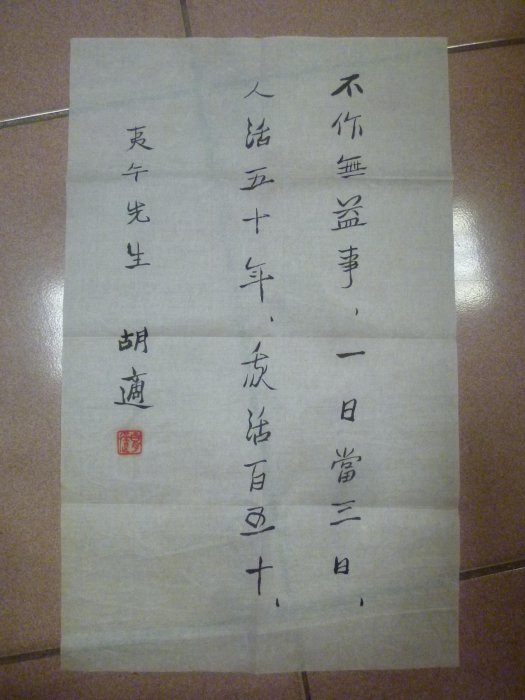 不作無益事、一日當三日、
人活五十年、我活百五十、
夷午先生 胡適